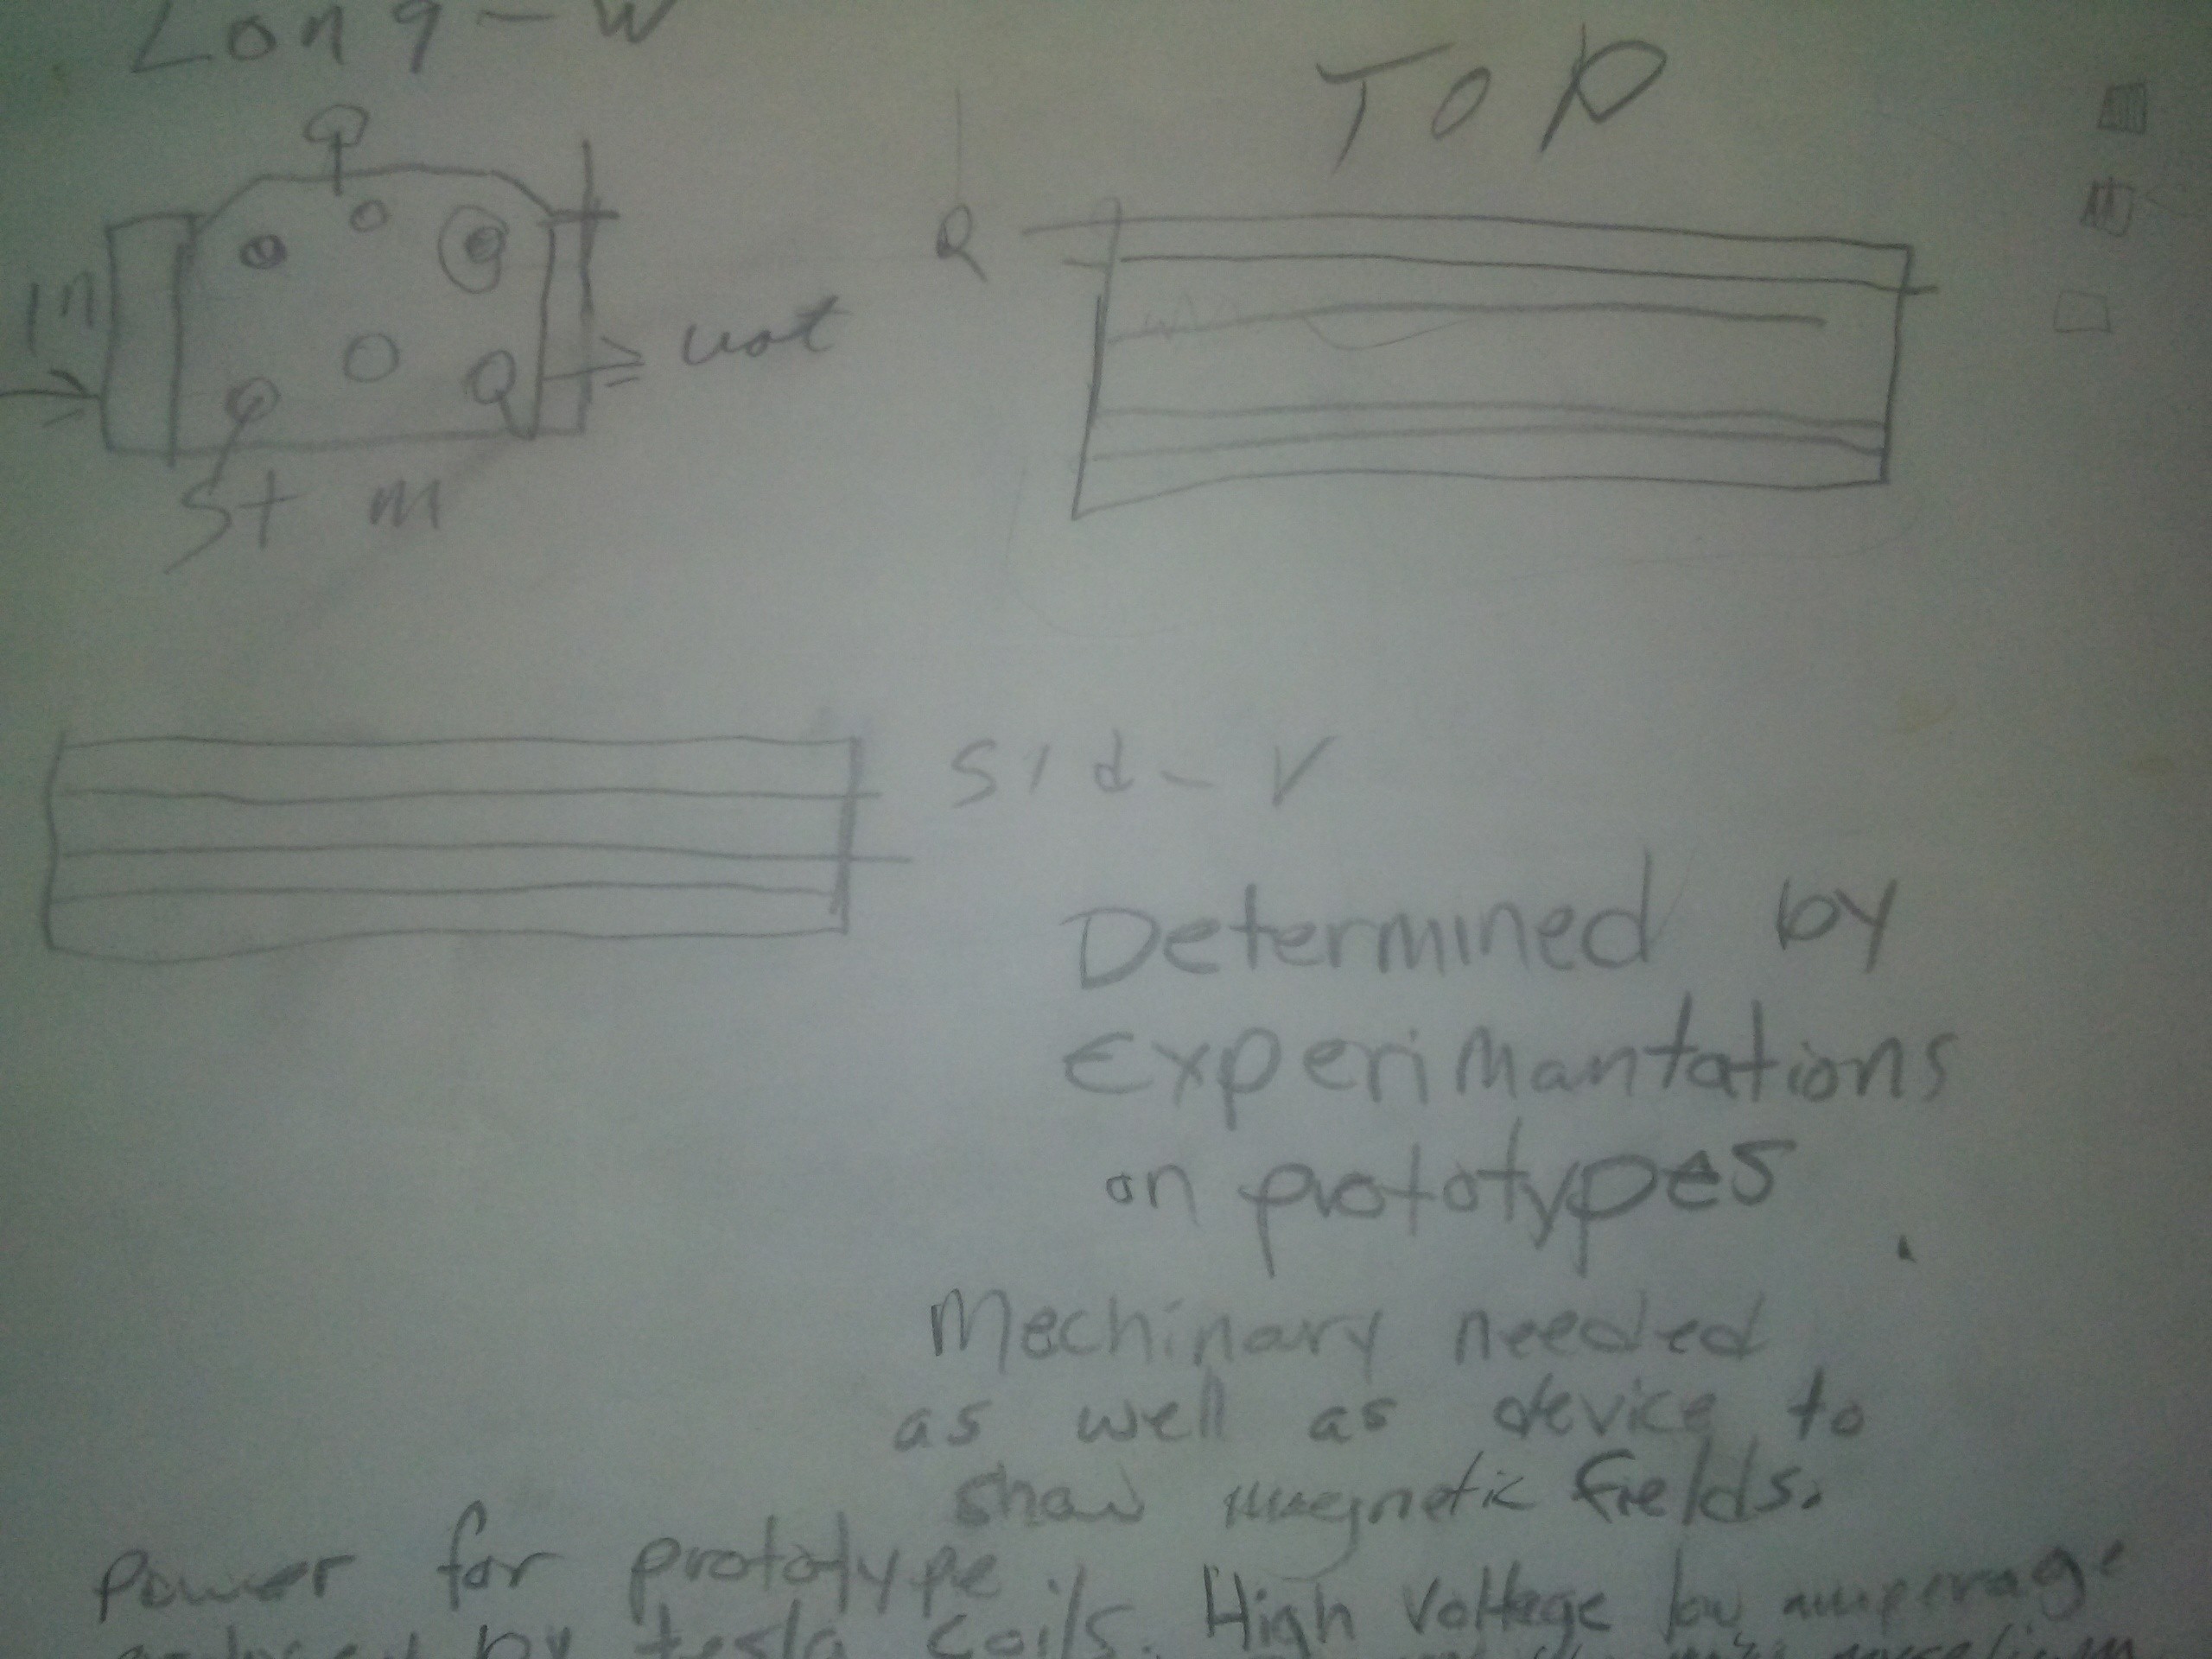 Long - W
TOP
Q
In
uot
St m
Sid - V
Determined by
Experimantations
on prototypes
Mechinary needed
as well as device to
show magnetic fields.
Power for prototype
by tesla coils. High Voltage low amperage